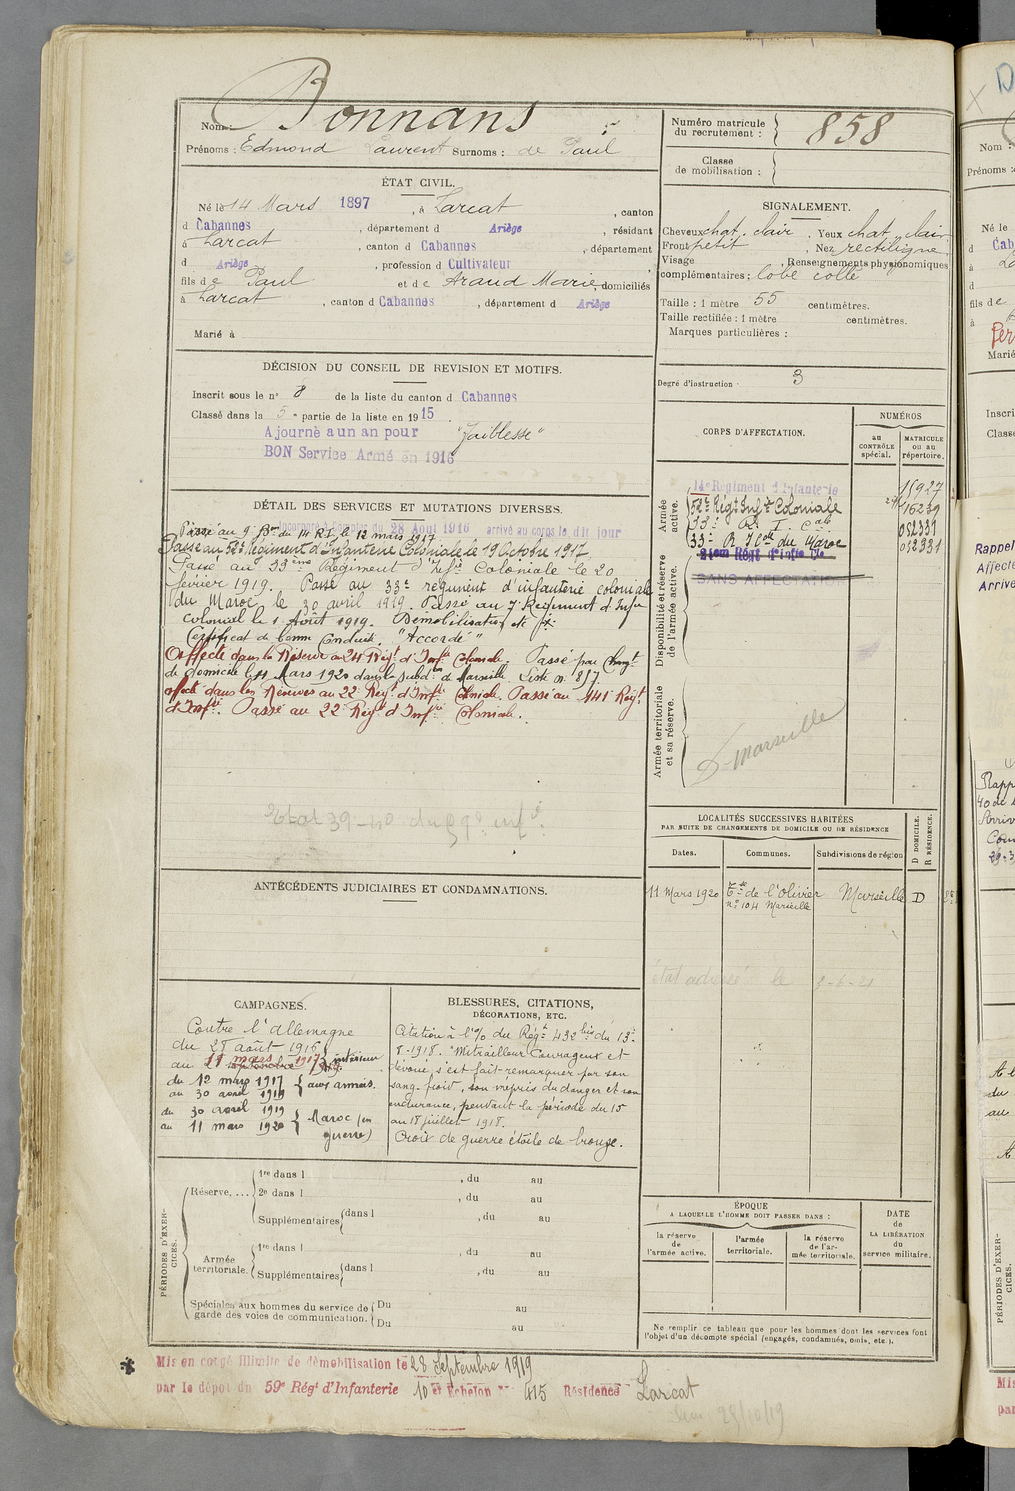 Nom : Bonnans
Prénoms : Edmond Laurent Surnoms : de Paul
Numéro matricule
du recrutement : 858
Classe
de mobilisation :
ÉTAT CIVIL.
Né le 14 Mars 1897, à Larcat, canton
d Cabannes, département d Ariège, résidant
à Larcat, canton d Cabannes, département
d Ariège, profession d Cultivateur
fils de Paul et de Araud Marie, domiciliés
à Larcat, canton d Cabannes, département d Ariège
Marié à
SIGNALEMENT.
Cheveux chat. clair. Yeux chat. clair
Front petit. Nez rectiligne
Visage Renseignements physionomiques
complémentaires : lobe collé
Taille : 1 mètre 55 centimètres.
Taille rectifiée : 1 mètre centimètres.
Marques particulières :
Degré d'instruction : 3
DÉCISION DU CONSEIL DE REVISION ET MOTIFS.
Inscrit sous le n° 8 de la liste du canton d Cabannes
Classé dans la 5e partie de la liste en 1915
Ajourné a un an pour "Faiblesse"
BON Service Armé en 1916
DÉTAIL DES SERVICES ET MUTATIONS DIVERSES.
Incorporé à compter du 28 Août 1916 arrivé au corps le dit jour
Passé au 9e Bon du 14 R.I. le 12 mars 1917
Passe au 52e Régiment d'Infanterie Coloniale le 19 Octobre 1917
Passé au 33ème Régiment d'Infie Coloniale le 20
février 1919. Passé au 33e régiment d'infanterie coloniale
du Maroc le 30 avril 1919. Passé au 7e Régiment d'Infie
Colonial le 1 Août 1919. Démobilisation
Certificat de bonne Conduite "Accordé"
Affecté dans la Réserve au 24 Régt d'Infie Coloniale. Passé par Changt
de domicile le 11 Mars 1920 dans la subdon de Marseille. Liste n° 817.
affecté dans les Réserves au 22e Régt d'Infie Coloniale. Passé au 141 Régt
d'Infie. Passé au 22e Régt d'Infie Coloniale.
Etat 39-40 du 59e infie
CORPS D'AFFECTATION.
NUMÉROS
au
CONTRÔLE
spécial.
MATRICULE
ou au
répertoire.
Armée
active.
14e Régiment d'Infanterie 15927
52e Régt Infie Coloniale 16239
R. I. Cale 052331
33e R Icle du Maroc 052331
Disponibilité et réserve
de l'armée active.
SANS AFFECTATION
Armée territoriale
et sa réserve.
D- Marseille
LOCALITÉS SUCCESSIVES HABITÉES
PAR SUITE DE CHANGEMENTS DE DOMICILE OU DE RÉSIDENCE
Dates.
Communes.
Subdivisions de région
D DOMICILE.
R RÉSIDENCE.
11 Mars 1920 de l'Olivier Marseille D
n° 104 Marseille
état adressé le
ANTÉCÉDENTS JUDICIAIRES ET CONDAMNATIONS.
CAMPAGNES.
Contre l'Allemagne
du 28 août 1916
au 11 mars 1917 intérieur
du 12 mars 1917
au 30 avril 1919 aux armées.
du 30 avril 1919
au 11 mars 1920 Maroc (en
guerre)
BLESSURES, CITATIONS,
DÉCORATIONS, ETC.
Citation à l'O/ du Régt 432 bis du 13-
8-1918. "Mitrailleur Courageux et
dévoué, s'est fait remarquer par son
sang-froid, son mépris du danger et son
endurance, pendant la période du 15
au 18 juillet 1918.
Croix de guerre étoile de bronze.
PÉRIODES D'EXER-
CICES.
Réserve, ...
1re dans l , du au
2e dans l , du au
Supplémentaires dans l , du au
Armée
territoriale.
1re dans l , du au
Supplémentaires dans l , du au
Spéciales aux hommes du service de
garde des voies de communication.
Du au
Du au
ÉPOQUE
A LAQUELLE L'HOMME DOIT PASSER DANS :
la réserve
de
l'armée active.
l'armée
territoriale.
la réserve
de l'ar-
mée territoriale.
DATE
de
LA LIBÉRATION
du
service militaire.
Ne remplir ce tableau que pour les hommes dont les services font
l'objet d'un décompte spécial (engagés, condamnés, omis, etc.).
Mis en congé illimité de démobilisation le 28 Septembre 1919
par le dépôt du 59e Régt d'Infanterie 10 et Echelon N° 415 Résidence Larcat